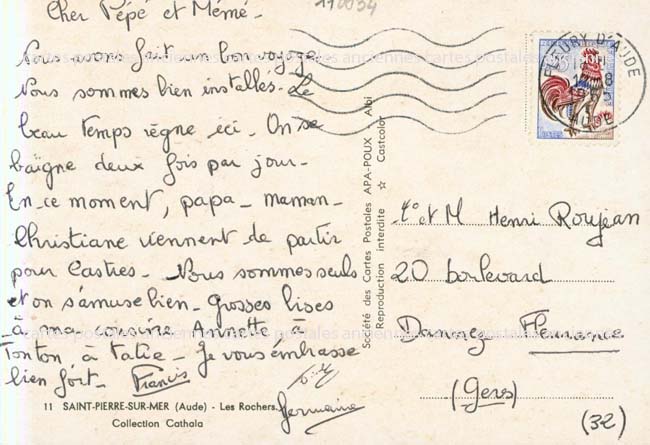 Cher Pépé et Mémé -
Nous avons fait un bon voyage
Nous sommes bien installés - Le
beau temps règne ici - On se
baigne deux fois par jour -
En ce moment, papa - maman -
Christiane viennent de partir
pour Castres - Nous sommes seuls
et on s'amuse bien - Grosses bises
à ma cousine Annette à
Tonton, a Tatie - Je vous embrasse
bien fort - Francis
Germaine
11 SAINT-PIERRE-SUR-MER (Aude) - Les Rochers.
Collection Cathala
Société des Cartes Postales APA-POUX Albi
Reproduction interdite ☆ Castcolor
110034
FLEURY D'AUDE
et M Henri Roujean
20 boulevard
Fleurance
(Gers)
(32)